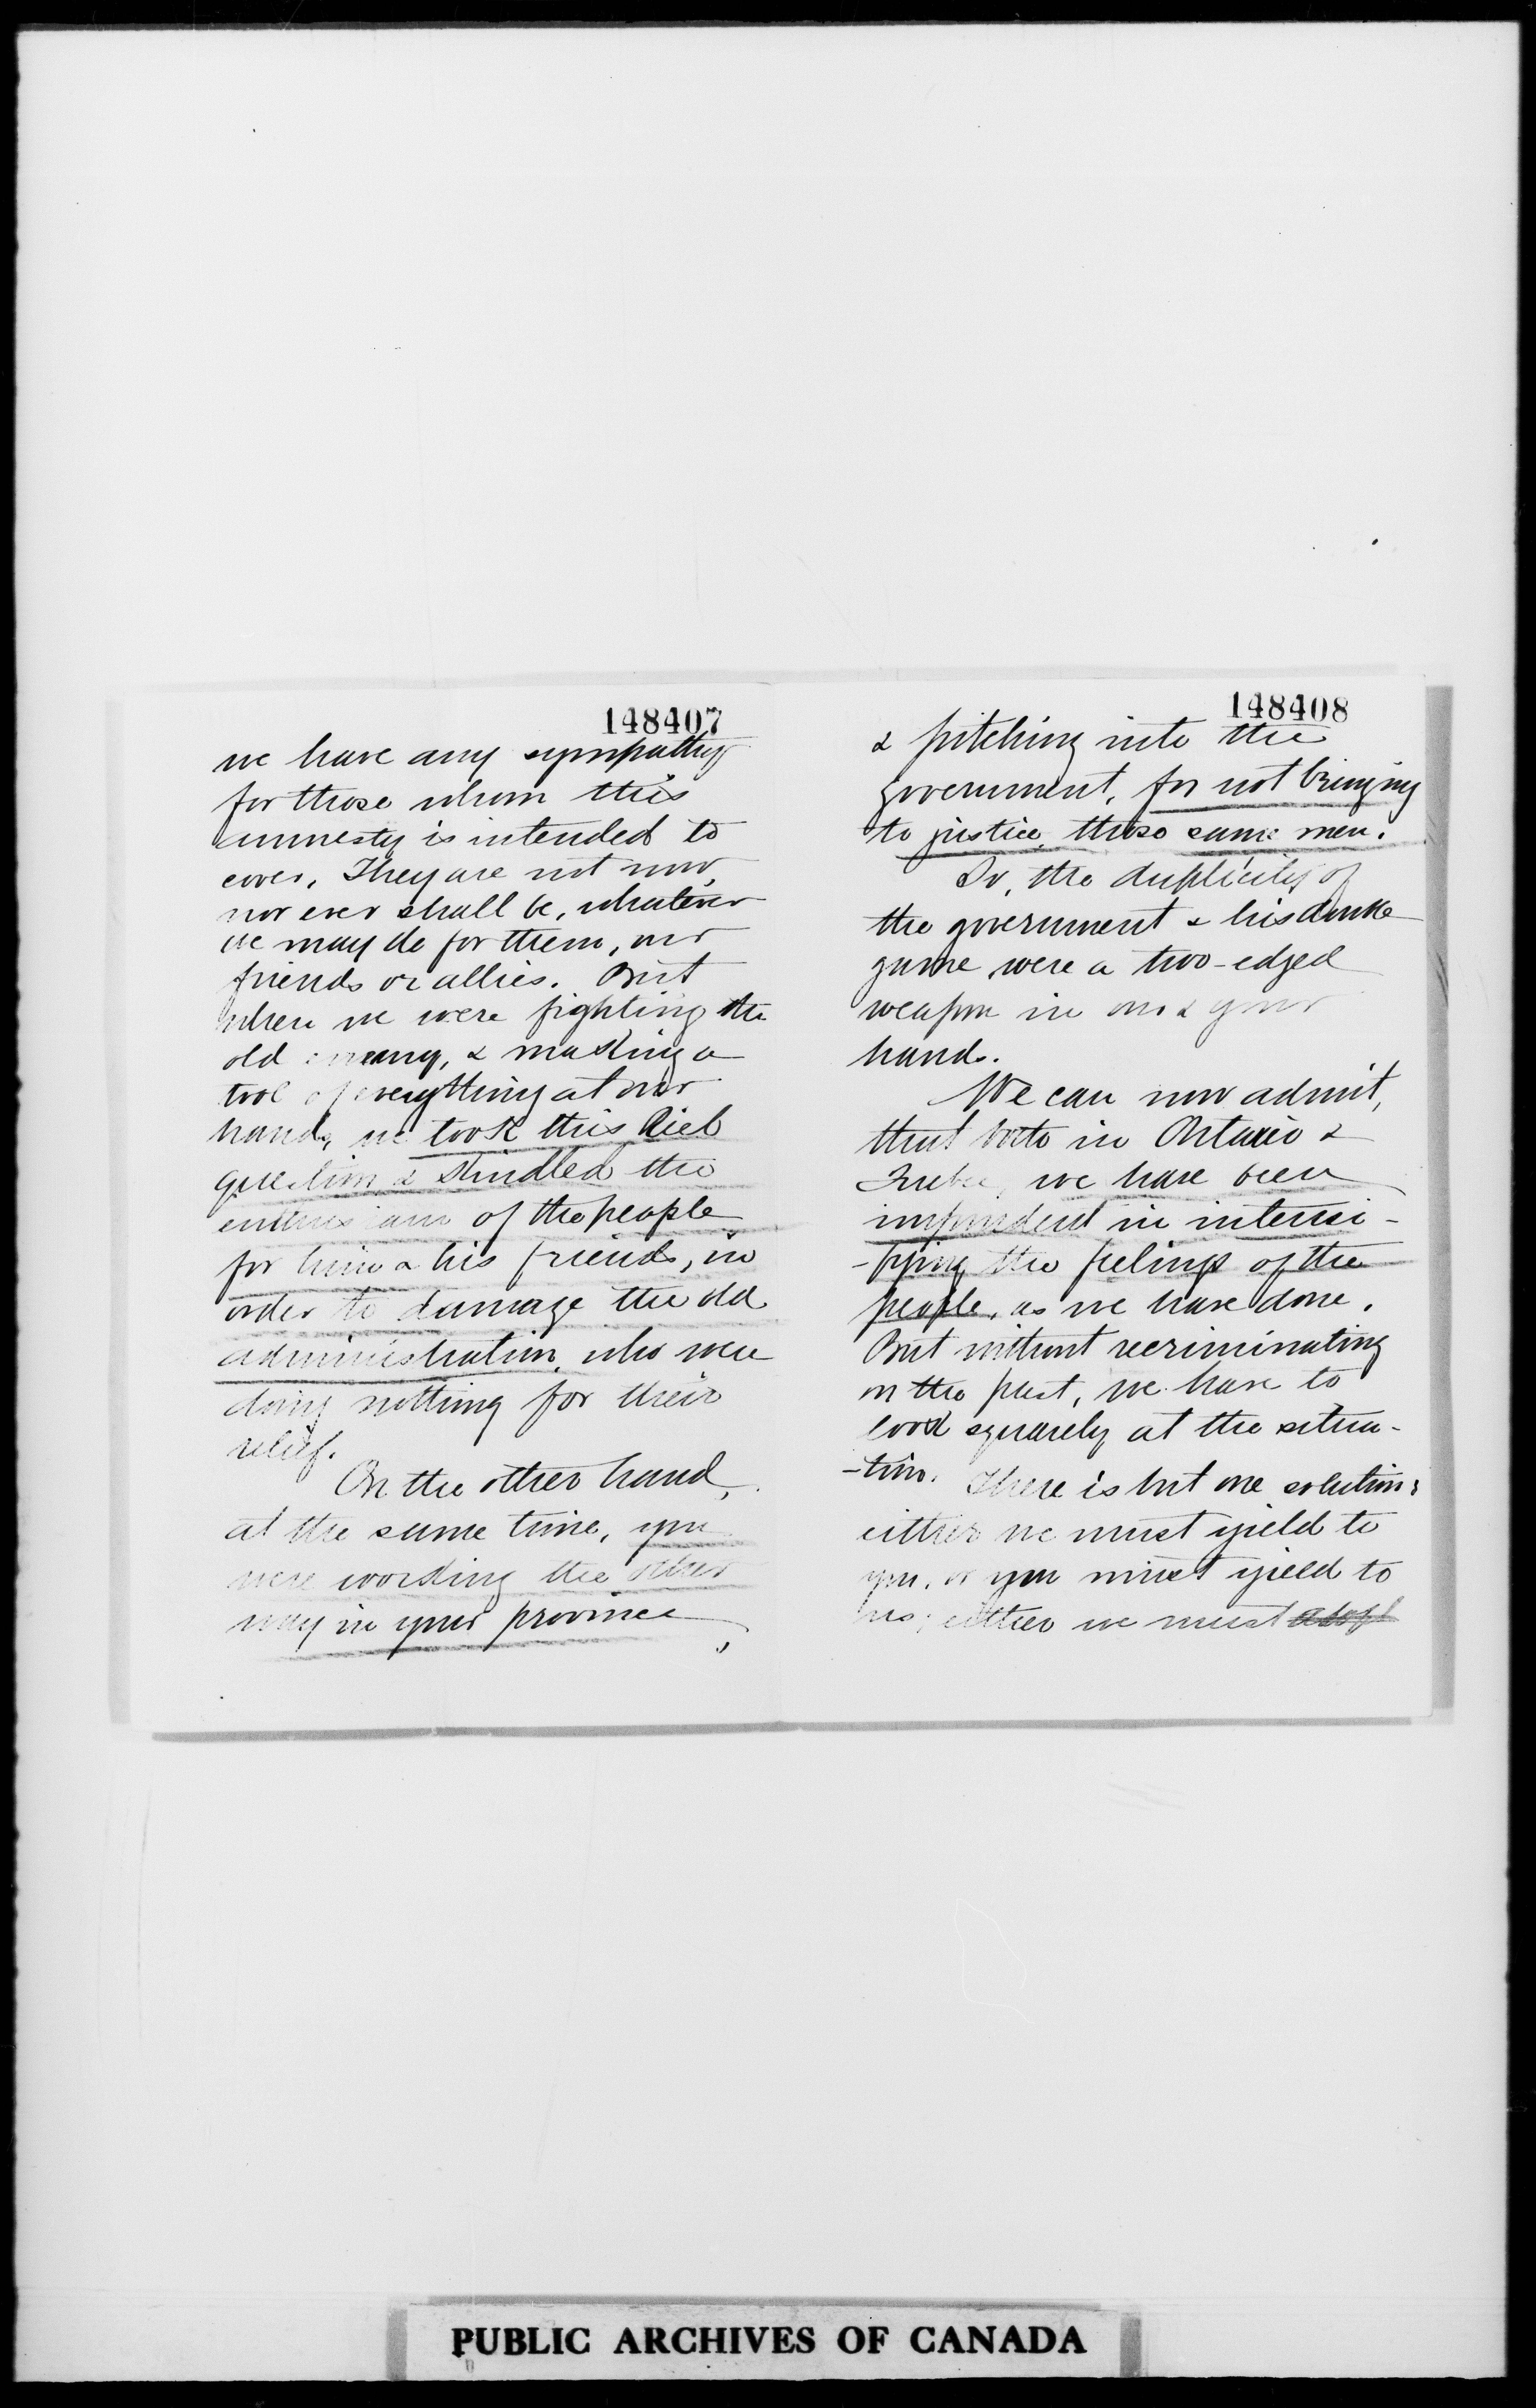 148407
we have any sympathy
for those whom this
amnesty is intended to
cover. They are not now,
nor ever shall be, whatever
we may do for them, our
friends or allies. But
when we were fighting the
old enemy, & making a
tool of everything at our
hand, we took this Riel
question & kindled the
enthusiasm of the people
for him & his friends, in
order to damage the old
administration, who were
doing nothing for their
relief.
On the other hand,
at the same time, you
were working the other
way in your province,
148408
& pitching into the
government, for not bringing
to justice, these same men.
So, the duplicity of
the government & his double
game were a two-edged
weapon in our & your
hands.
We can now admit,
that both in Ontario &
Quebec, we have been
imprudent in intensi-
-fying the feelings of the
people, as we have done.
But without recriminating
on the past, we have to
look squarely at the situa-
-tion. There is but one solution:
either we must yield to
you, or you must yield to
us; either we must adopt
PUBLIC ARCHIVES OF CANADA